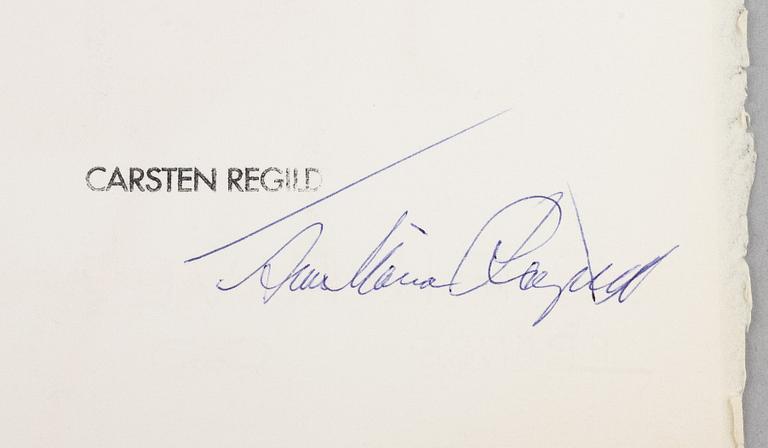 CARSTEN REGILD
Ann Maria Regild